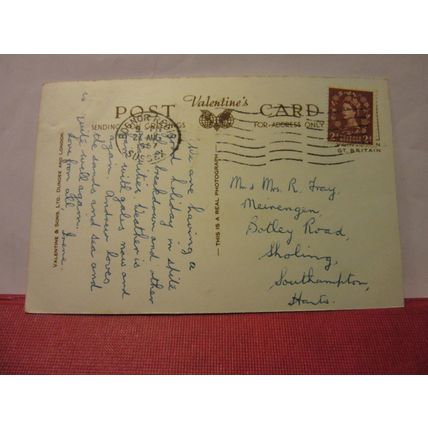 POST Valentine's CARD
SENDING GREETINGS
FOR ADDRESS ONLY
BOGNOR REGIS
27 AUG
1957
SUSSEX
2D 2D
GT. BRITAIN
We are having a
good holiday in spite
of breakdown and other
Weather is
with gales now and
again. Andrew loves
the sands and sea and
is quite well again.
Love from all. Irene.
— THIS IS A REAL PHOTOGRAPH —
VALENTINE & SONS, LTD. DUNDEE AND LONDON
Mr & Mrs. R. Fray.
Meirengen
Botley Road,
Sholing,
Southampton,
Hants.